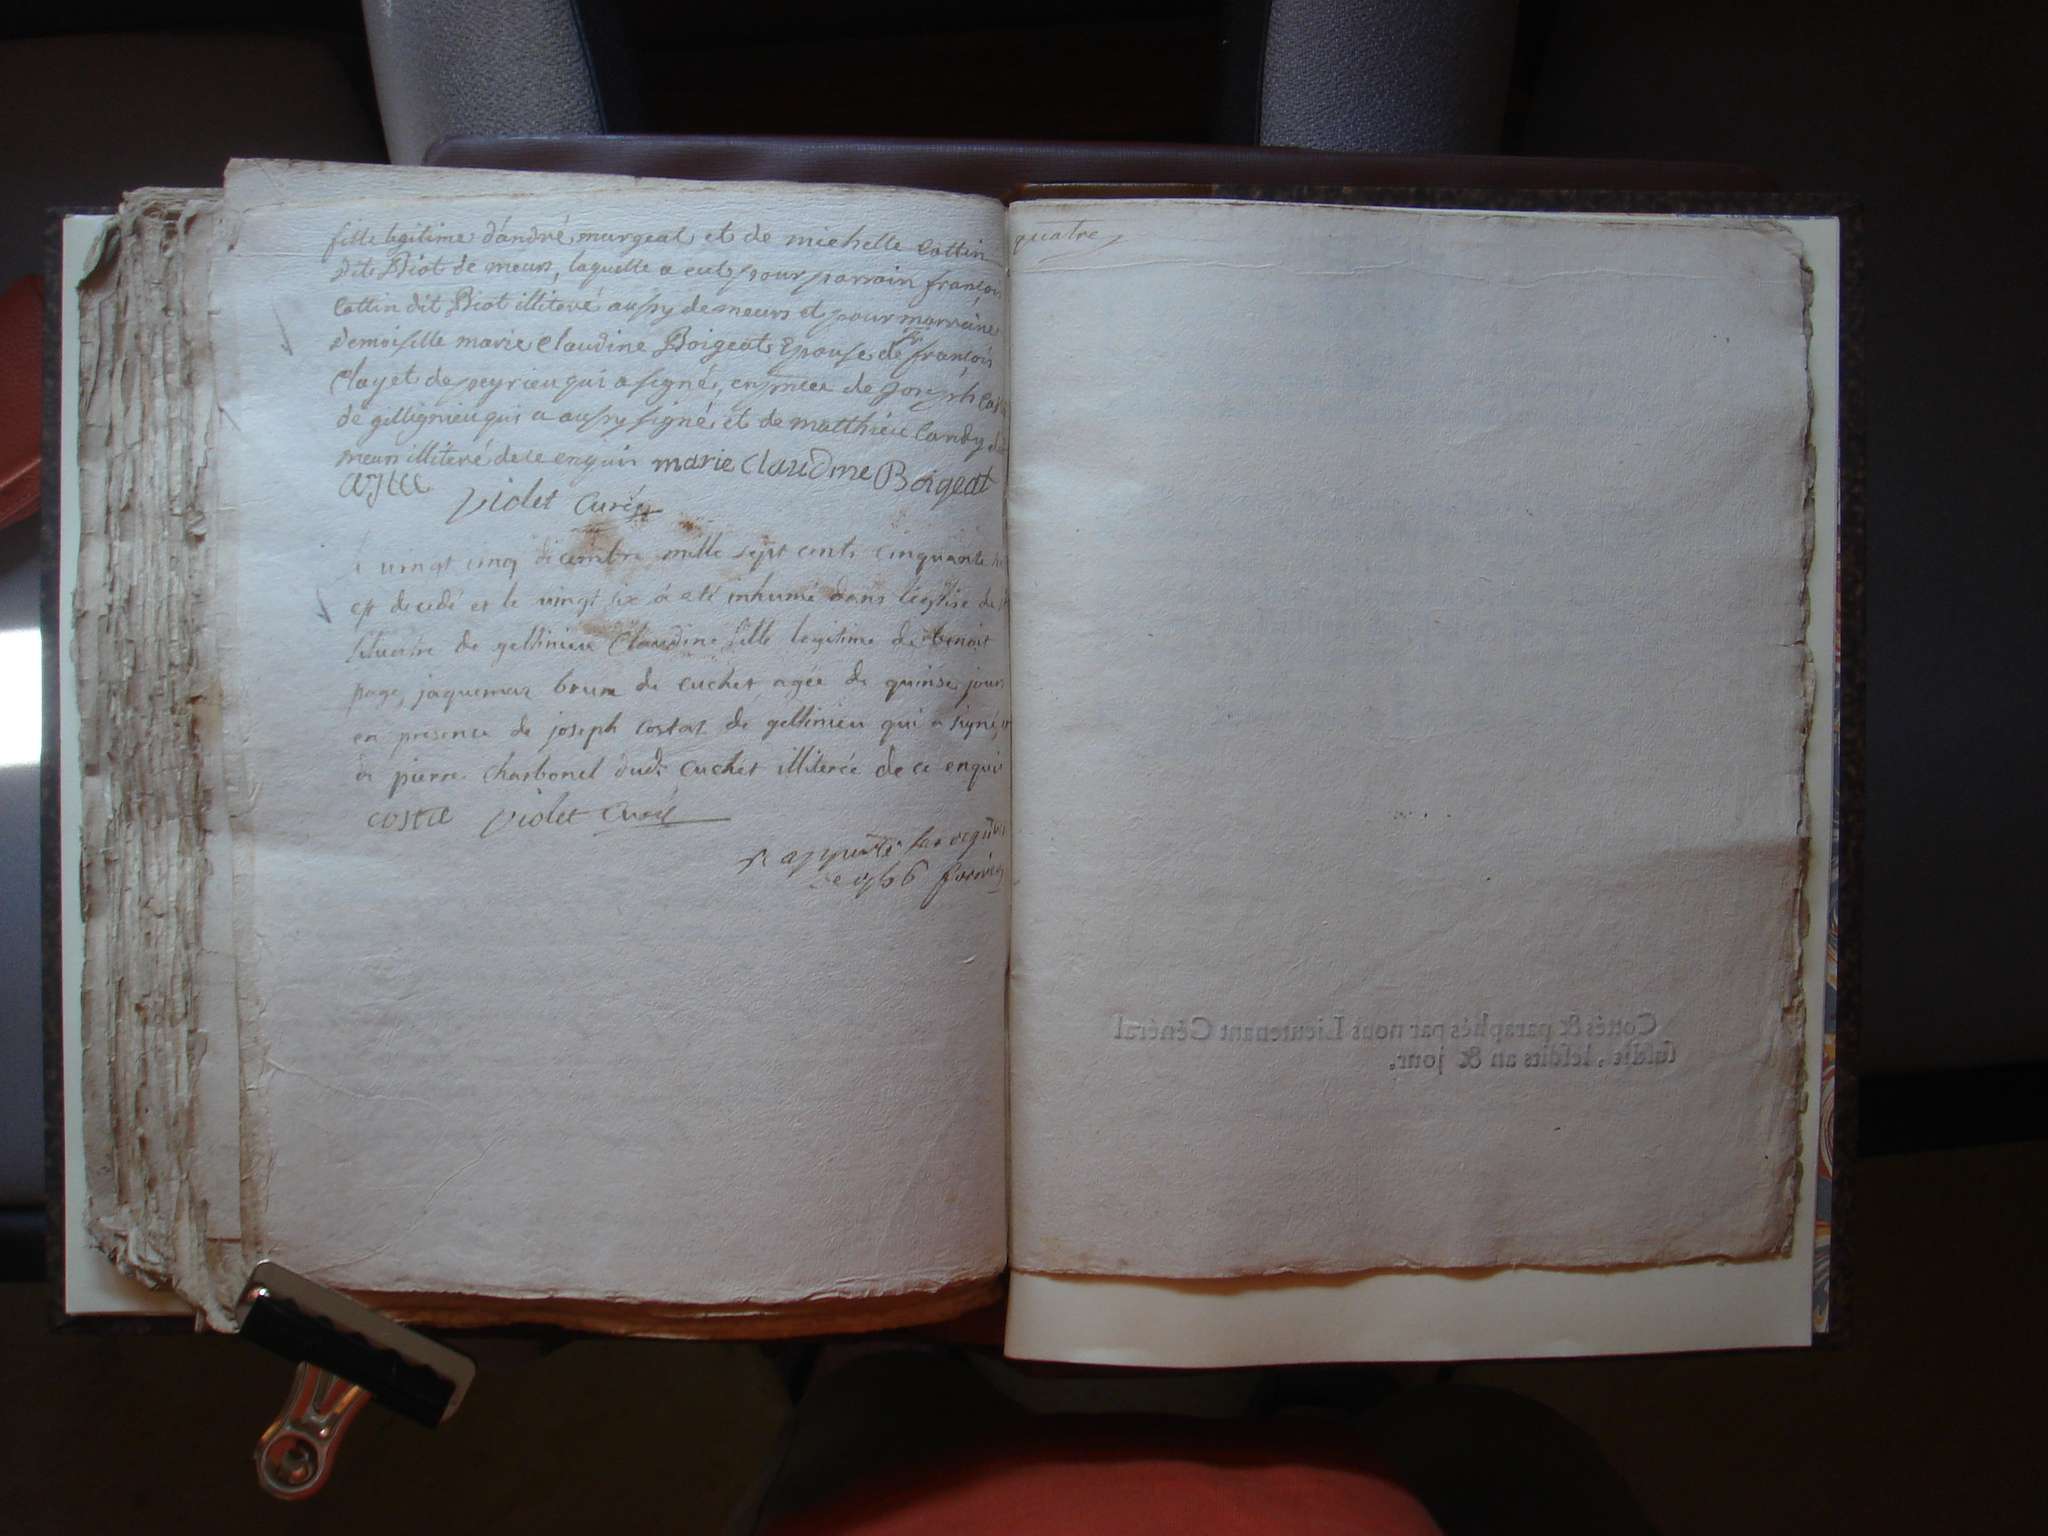 fille legitime d'andré murgeat et de michelle Cottin
dit Biot de meurs, laquelle a eut pour parrain françois
Cottin dit Biot illiteré aussy de meurs et pour marraine
demoiselle marie Claudine Boigeat Epouse de sr françois
Clayet de peyrieu qui a signé, en pnce de Joseph
de gellignieu qui a aussy signé et de matthieu landy
meurs illiteré de ce enquis marie Claudine Boigeat
costa
violet curé
le vingt cinq decembre mille sept cents cinquante
est decedé et le vingt six a eté inhumé dans l'eglise de
siluestre de gellinieu Claudine fille legitime de benoit
page, jaquemaz brune de cuchet agée de quinse jours
en presence de joseph costaz de gellinieu qui a signé,
de pierre charbonel dudt cuchet illiterée de ce enquis
costa violet curé
quatre
Cottés & paraphés par nous Lieutenant Général
susdit, lesdits an & jour.